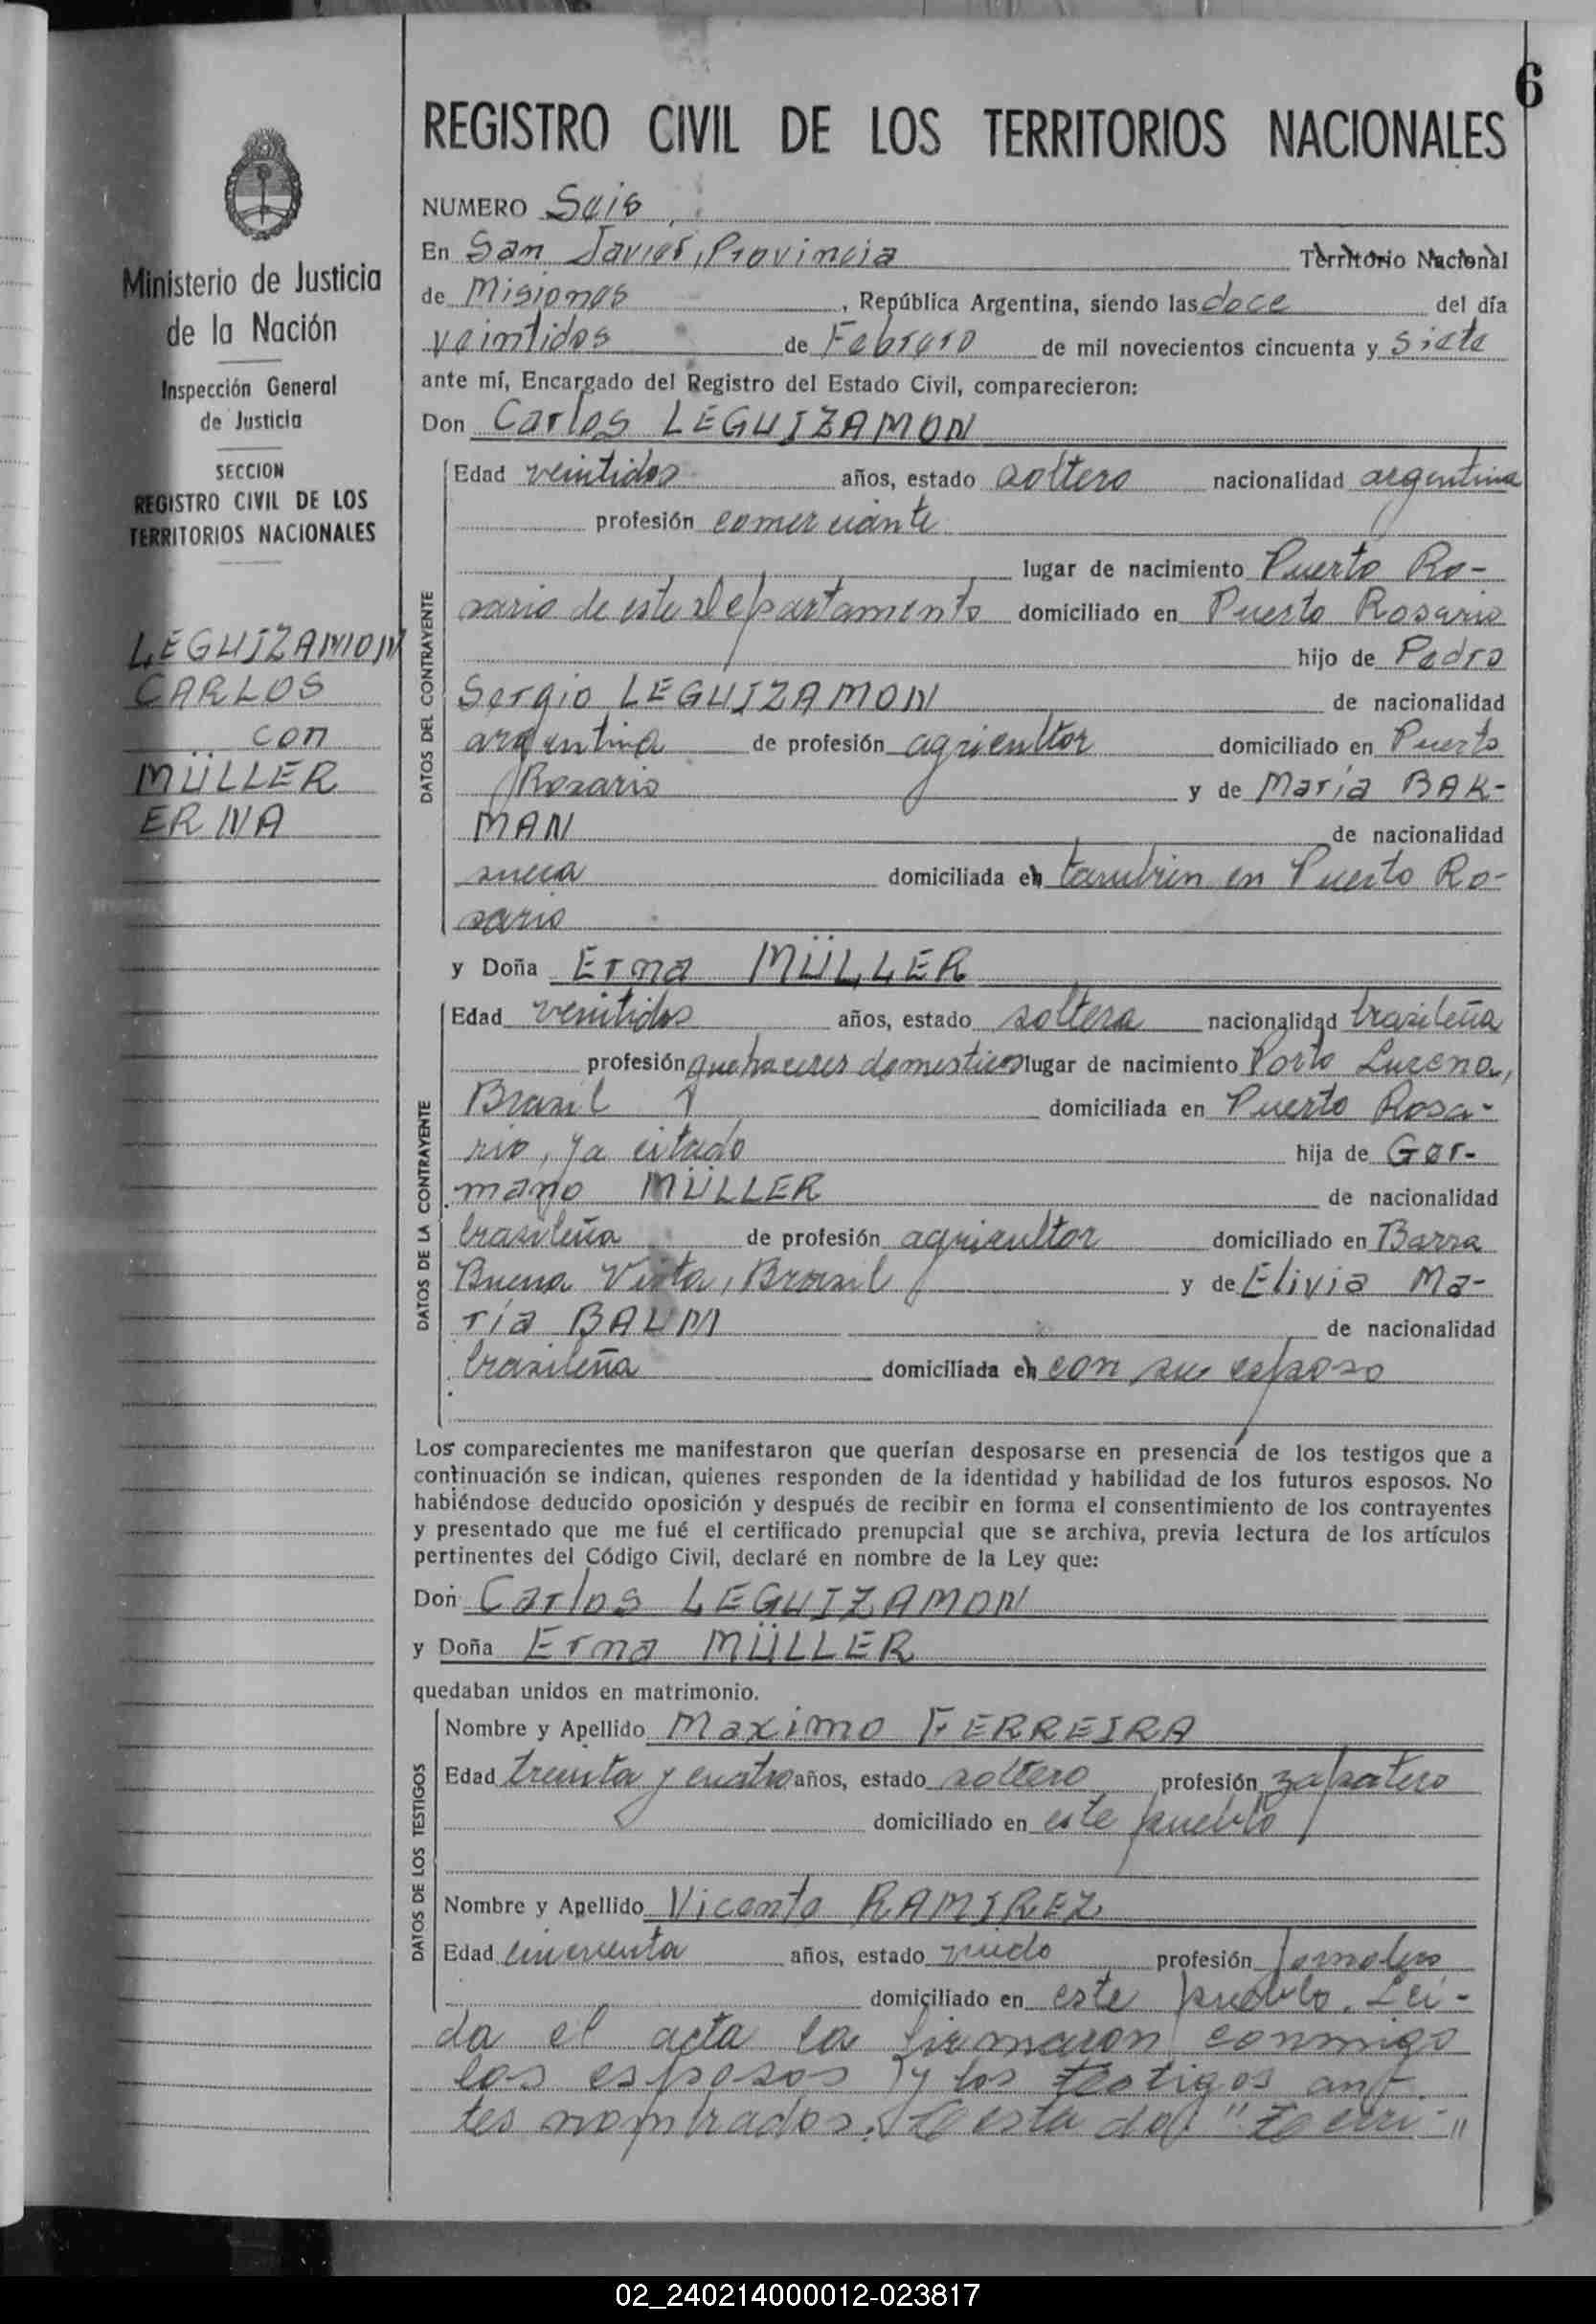 6
REGISTRO CIVIL DE LOS TERRITORIOS NACIONALES
Ministerio de Justicia
de la Nación
Inspección General
de Justicia
SECCION
REGISTRO CIVIL DE LOS
TERRITORIOS NACIONALES
LEGUIZAMON
CARLOS
con
MÜLLER
ERNA
NUMERO Seis
En San Javier, Provincia Territorio Nacional
de Misiones, República Argentina, siendo las doce del día
veintidos de Febrero de mil novecientos cincuenta y siete
ante mí, Encargado del Registro del Estado Civil, comparecieron:
Don Carlos LEGUIZAMON
DATOS DEL CONTRAYENTE
Edad veintidos años, estado soltero nacionalidad argentina
profesión comerciante
lugar de nacimiento Puerto Ro-
sario de este Departamento domiciliado en Puerto Rosario
hijo de Pedro
Sergio LEGUIZAMON de nacionalidad
argentina de profesión agricultor domiciliado en Puerto
Rosario y de María BAK-
MAN de nacionalidad
sueca domiciliada en tambien en Puerto Ro-
sario
y Doña Erna MÜLLER
DATOS DE LA CONTRAYENTE
Edad veintidos años, estado soltera nacionalidad brasileña
profesión quehaceres domesticos lugar de nacimiento Porto Lucena,
Brasil domiciliada en Puerto Rosa-
rio, ya citado hija de Ger-
mano MÜLLER de nacionalidad
brasileña de profesión agricultor domiciliado en Barra
Buena Vista, Brasil y de Elivia Ma-
ría BAUM de nacionalidad
brasileña domiciliada en con su esposo
Los comparecientes me manifestaron que querían desposarse en presencia de los testigos que a
continuación se indican, quienes responden de la identidad y habilidad de los futuros esposos. No
habiéndose deducido oposición y después de recibir en forma el consentimiento de los contrayentes
y presentado que me fué el certificado prenupcial que se archiva, previa lectura de los artículos
pertinentes del Código Civil, declaré en nombre de la Ley que:
Don Carlos LEGUIZAMON
y Doña Erna MÜLLER
quedaban unidos en matrimonio.
DATOS DE LOS TESTIGOS
Nombre y Apellido Maximo FERREIRA
Edad treinta y cuatro años, estado soltero profesión zapatero
domiciliado en este pueblo
Nombre y Apellido Vicente RAMIREZ
Edad cincuenta años, estado viudo profesión jornalero
domiciliado en este pueblo. Lei-
da el acta la firmaron conmigo
los esposos y los testigos an-
tes nombrados. Testado "Terri-"
02_240214000012-023817